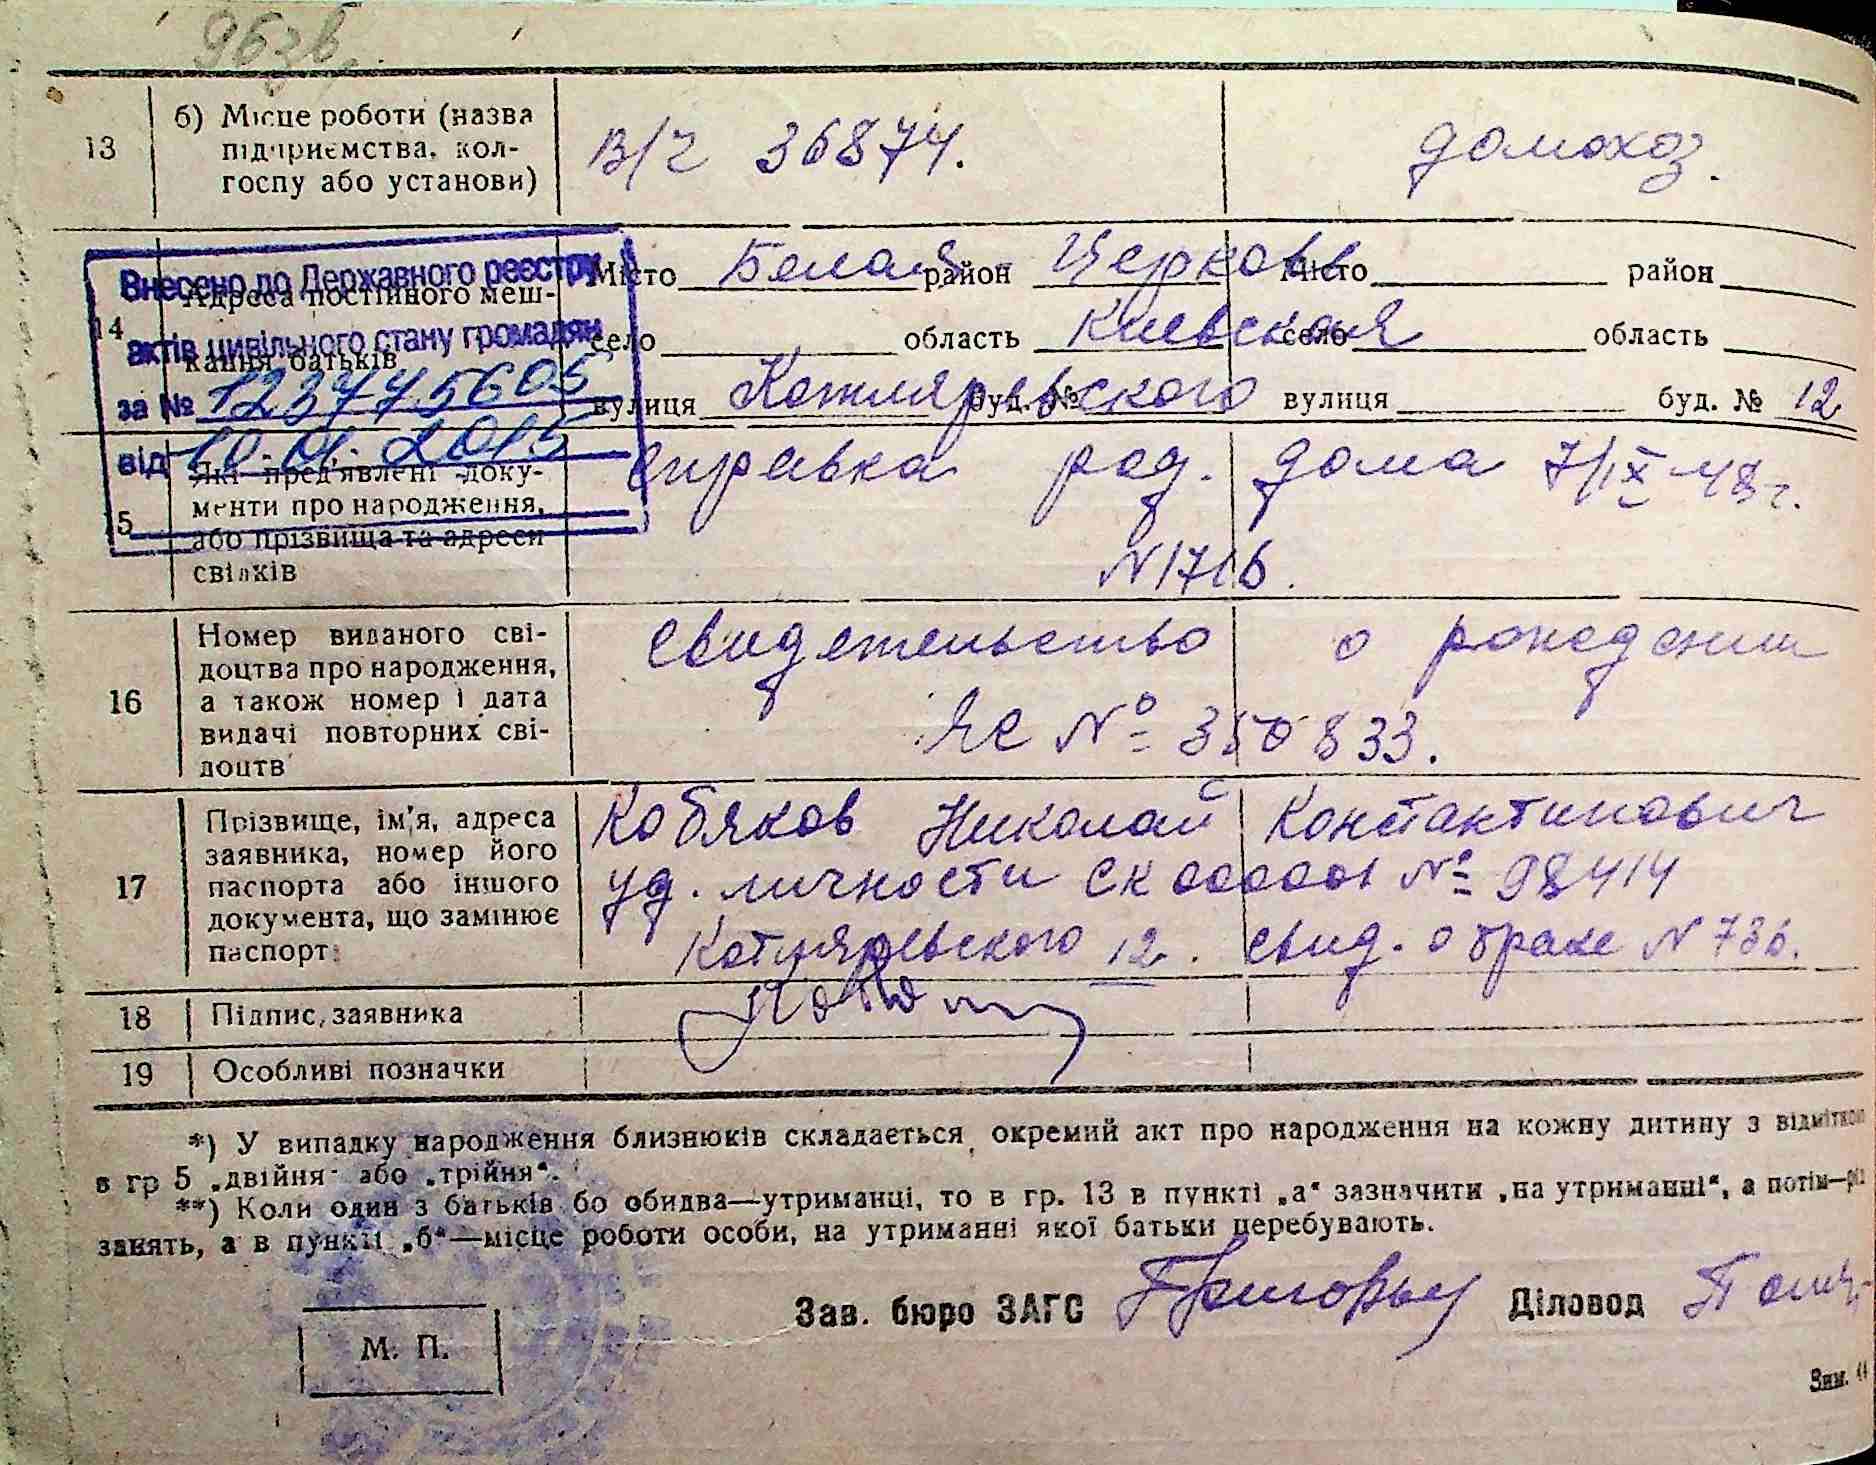 96зв.
13 б) Місце роботи (назва підприємства, колгоспу або установи) В/Ч 36874. домохоз.
Внесено до Державного реєстру
актів цивільного стану громадян
за № 1237745605
від 10.01.2015
14 Адреса постійного мешкання батьків
Місто Белая район Церковь Місто район
село область Киевская село область
вулиця Котляревского буд. № вулиця буд. № 12
15 Які пред'явлені документи про народження, або прізвища та адреси свідків
Справка род. дома 7/IX-48 г.
N 1716.
16 Номер виданого свідоцтва про народження, а також номер і дата видачі повторних свідоцтв
свидетельство о рождении
ЯС № 350833.
17 Прізвище, ім'я, адреса заявника, номер його паспорта або іншого документа, що замінює паспорт
Кобяков Николай Константинович
уд. личности СК 000001 № 98414
Котляревского 12. свид. о браке N 736.
18 Підпис, заявника
19 Особливі позначки
*) У випадку народження близнюків складається окремий акт про народження на кожну дитину з відміткою
в гр 5 „двійня" або „трійня".
**) Коли один з батьків бо обидва—утриманці, то в гр. 13 в пункті „а" зазначити „на утриманні", а потім—рід
занять, а в пункті „б"—місце роботи особи, на утриманні якої батьки перебувають.
Зав. бюро ЗАГС Діловод
М. П.
Зам.